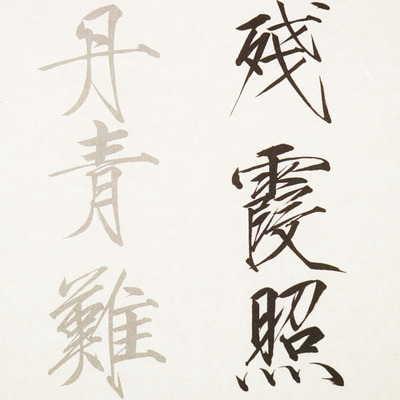 残霞照
丹青難